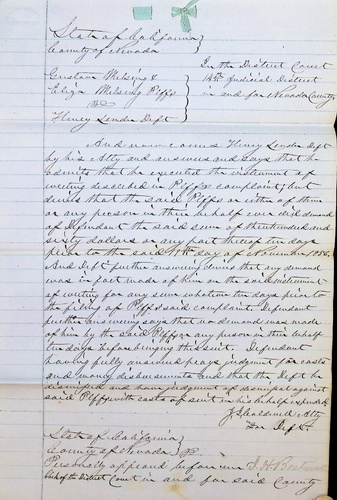 State of California
County of Nevada
In the District Court
14th Judicial District
in and for Nevada County
Gustav Milsing &
Eliza Milsing Plffs
vs
Henry Lender Deft
And now comes Henry Lender Deft
by his Atty and answers and says that he
admits that he executed the instrument of
writing described in Plffs complaint, but
denies that the said Plffs or either of them
or any person in their behalf ever did demand
of Defendant the said sum of three hundred and
sixty dollars or any part thereof ten days
prior to the said 18th day of November 1856.
And Deft further answering denies that any demand
was in fact made of him on the said instrument
of writing for any sum whatever ten days prior to
the filing of Plffs said complaint. Defendant
further answering says that no demand was made
of him by the said Plffs or any person in their behalf
ten days before bringing this suit. Defendant
having fully answered prays judgment for costs
and money disbursements and that the Deft be
dismissed and have judgment of dismissal against
said Plffs with costs of suit in his behalf expended
Caldwell Atty
For Deft
State of California
County of Nevada
Personally appeared before me
Clerk of the District Court in and for said County